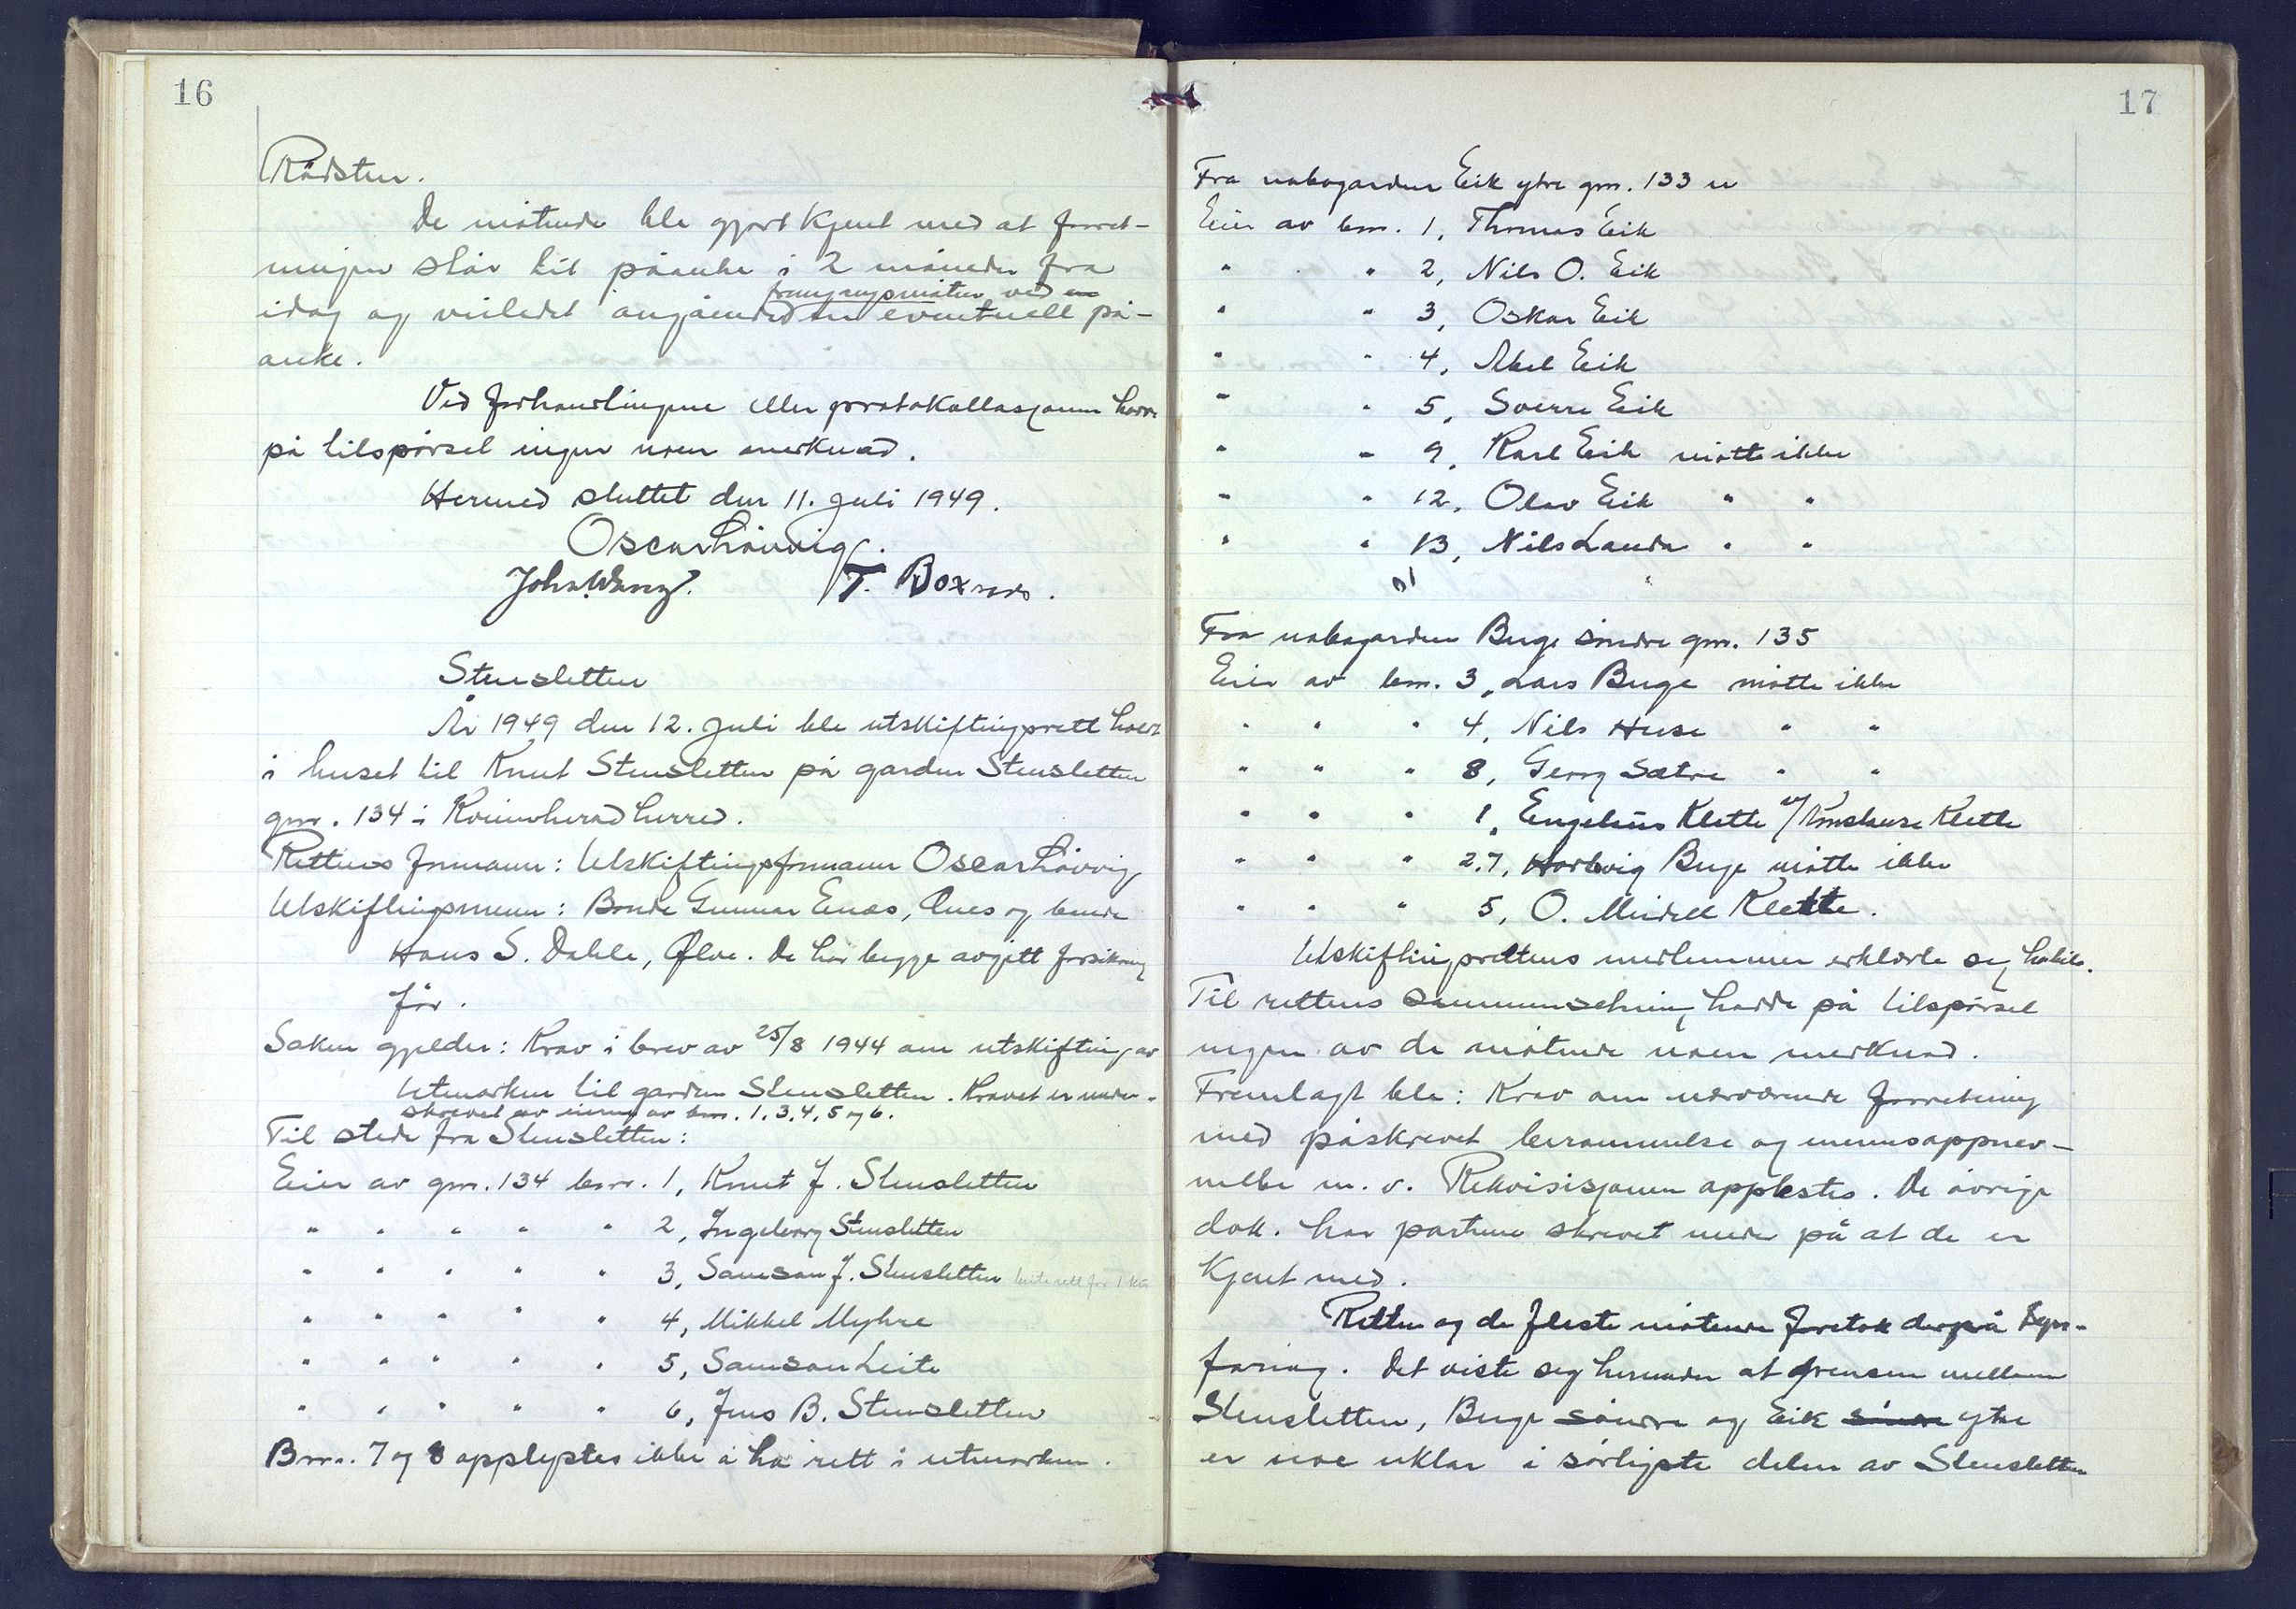 16
Rådsten.
De møtende ble gjort kjent med at forret-
ningen står til påanke i 2 måneder fra
fremgangsmåten ved
idag og veiledet angående en eventuell på-
anke.
Ved forhandlingene eller protokollasjonen havde
på tilspørsel ingen noen merknad.
Hermed sluttet den 11. juli 1949.
Oscar Løvvig.
John Wang. T. Boxnes.
Stensletten
År 1949 den 12. juli ble utskiftingsrett holdt
i huset til Knut Stensletten på garden Stensletten
gnr. 134 i Kvinnherad herred.
Rettens formann: Utskiftingsformann Oscar Løvvig
Utskiftingsmenn: Bonde Gunnar Enæs, Ænes og bonde
Hans S. Dahle, Ølve. De har begge avgitt forsikring
før.
Saken gjelder: Krav i brev av 25/8 1944 om utskifting av
utmarken til garden Stensletten. Kravet er under-
skrevet av eierne av bnr. 1, 3, 4, 5 og 6.
Til stede fra Stensletten:
Eier av gnr. 134 bnr. 1, Knut J. Stensletten
" " " " " 2, Ingeborg Stensletten
" " " " " 3, Samson J. Stensletten beiterett for 1 ku
" " " " " 4, Mikkel Myhre
" " " " " 5, Samson Leite
" " " " " 6, Jens B. Stensletten
Bnr. 7 og 8 opplystes ikke å ha rett i utmarken.
17
Fra nabogarden Eik ytre gnr. 133 er
Eier av bnr. 1, Thomas Eik
" " 2, Nils O. Eik
" " 3, Oskar Eik
" " 4, Abel Eik
" " 5, Sverre Eik
" " 9, Karl Eik møtte ikke
" " 12, Olav Eik " "
" " 13, Nils Landa " "
Fra nabogarden Berge søndre gnr. 135
Eier av bnr. 3, Lars Berge møtte ikke
" " " 4, Nils Huse " "
" " " 8, Georg Sætre " "
" " " 1, Engelius Klette v/ Klette
" " " 2.7, Hartvig Berge møtte ikke
" " " 5, O. Meidell Klette.
Utskiftingsrettens medlemmer erklærte seg habile.
Til rettens sammensetning hadde på tilspørsel
ingen av de møtende noen merknad.
Fremlagt ble: Krav om nærværende forretning
med påskrevet berammelse og mennsoppnev-
nelse m. v. Rekvisisjonen opplestes. De øvrige
dok. har partene skrevet under på at de er
kjent med.
Retten og de fleste møtende foretok derpå syn-
faring. Det viste seg herunder at grensen mellom
Stensletten, Berge søndre og Eik søndre ytre
er noe uklar i sørligste delen av Stensletten